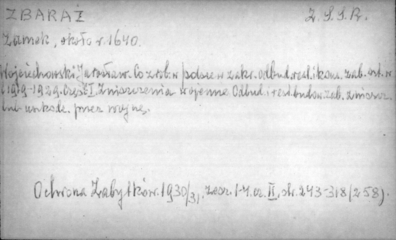 ZBARAŻ Z.S.S.R.
Zamek, około r. 1640.
Wojciechowski Jarosław. Co zrob. w Polsce w zakr. odbud. i kons. zab. szt. w
l. 1919-1929. Część I. Zniszczenia wojenne. Odbud. i rest. budow. zab. zniszcz.
lub uszkodz. przez wojnę.
Ochrona Zabytków. 1930/31, zesz. 1-4. cz. II, str. 243-318 (258).